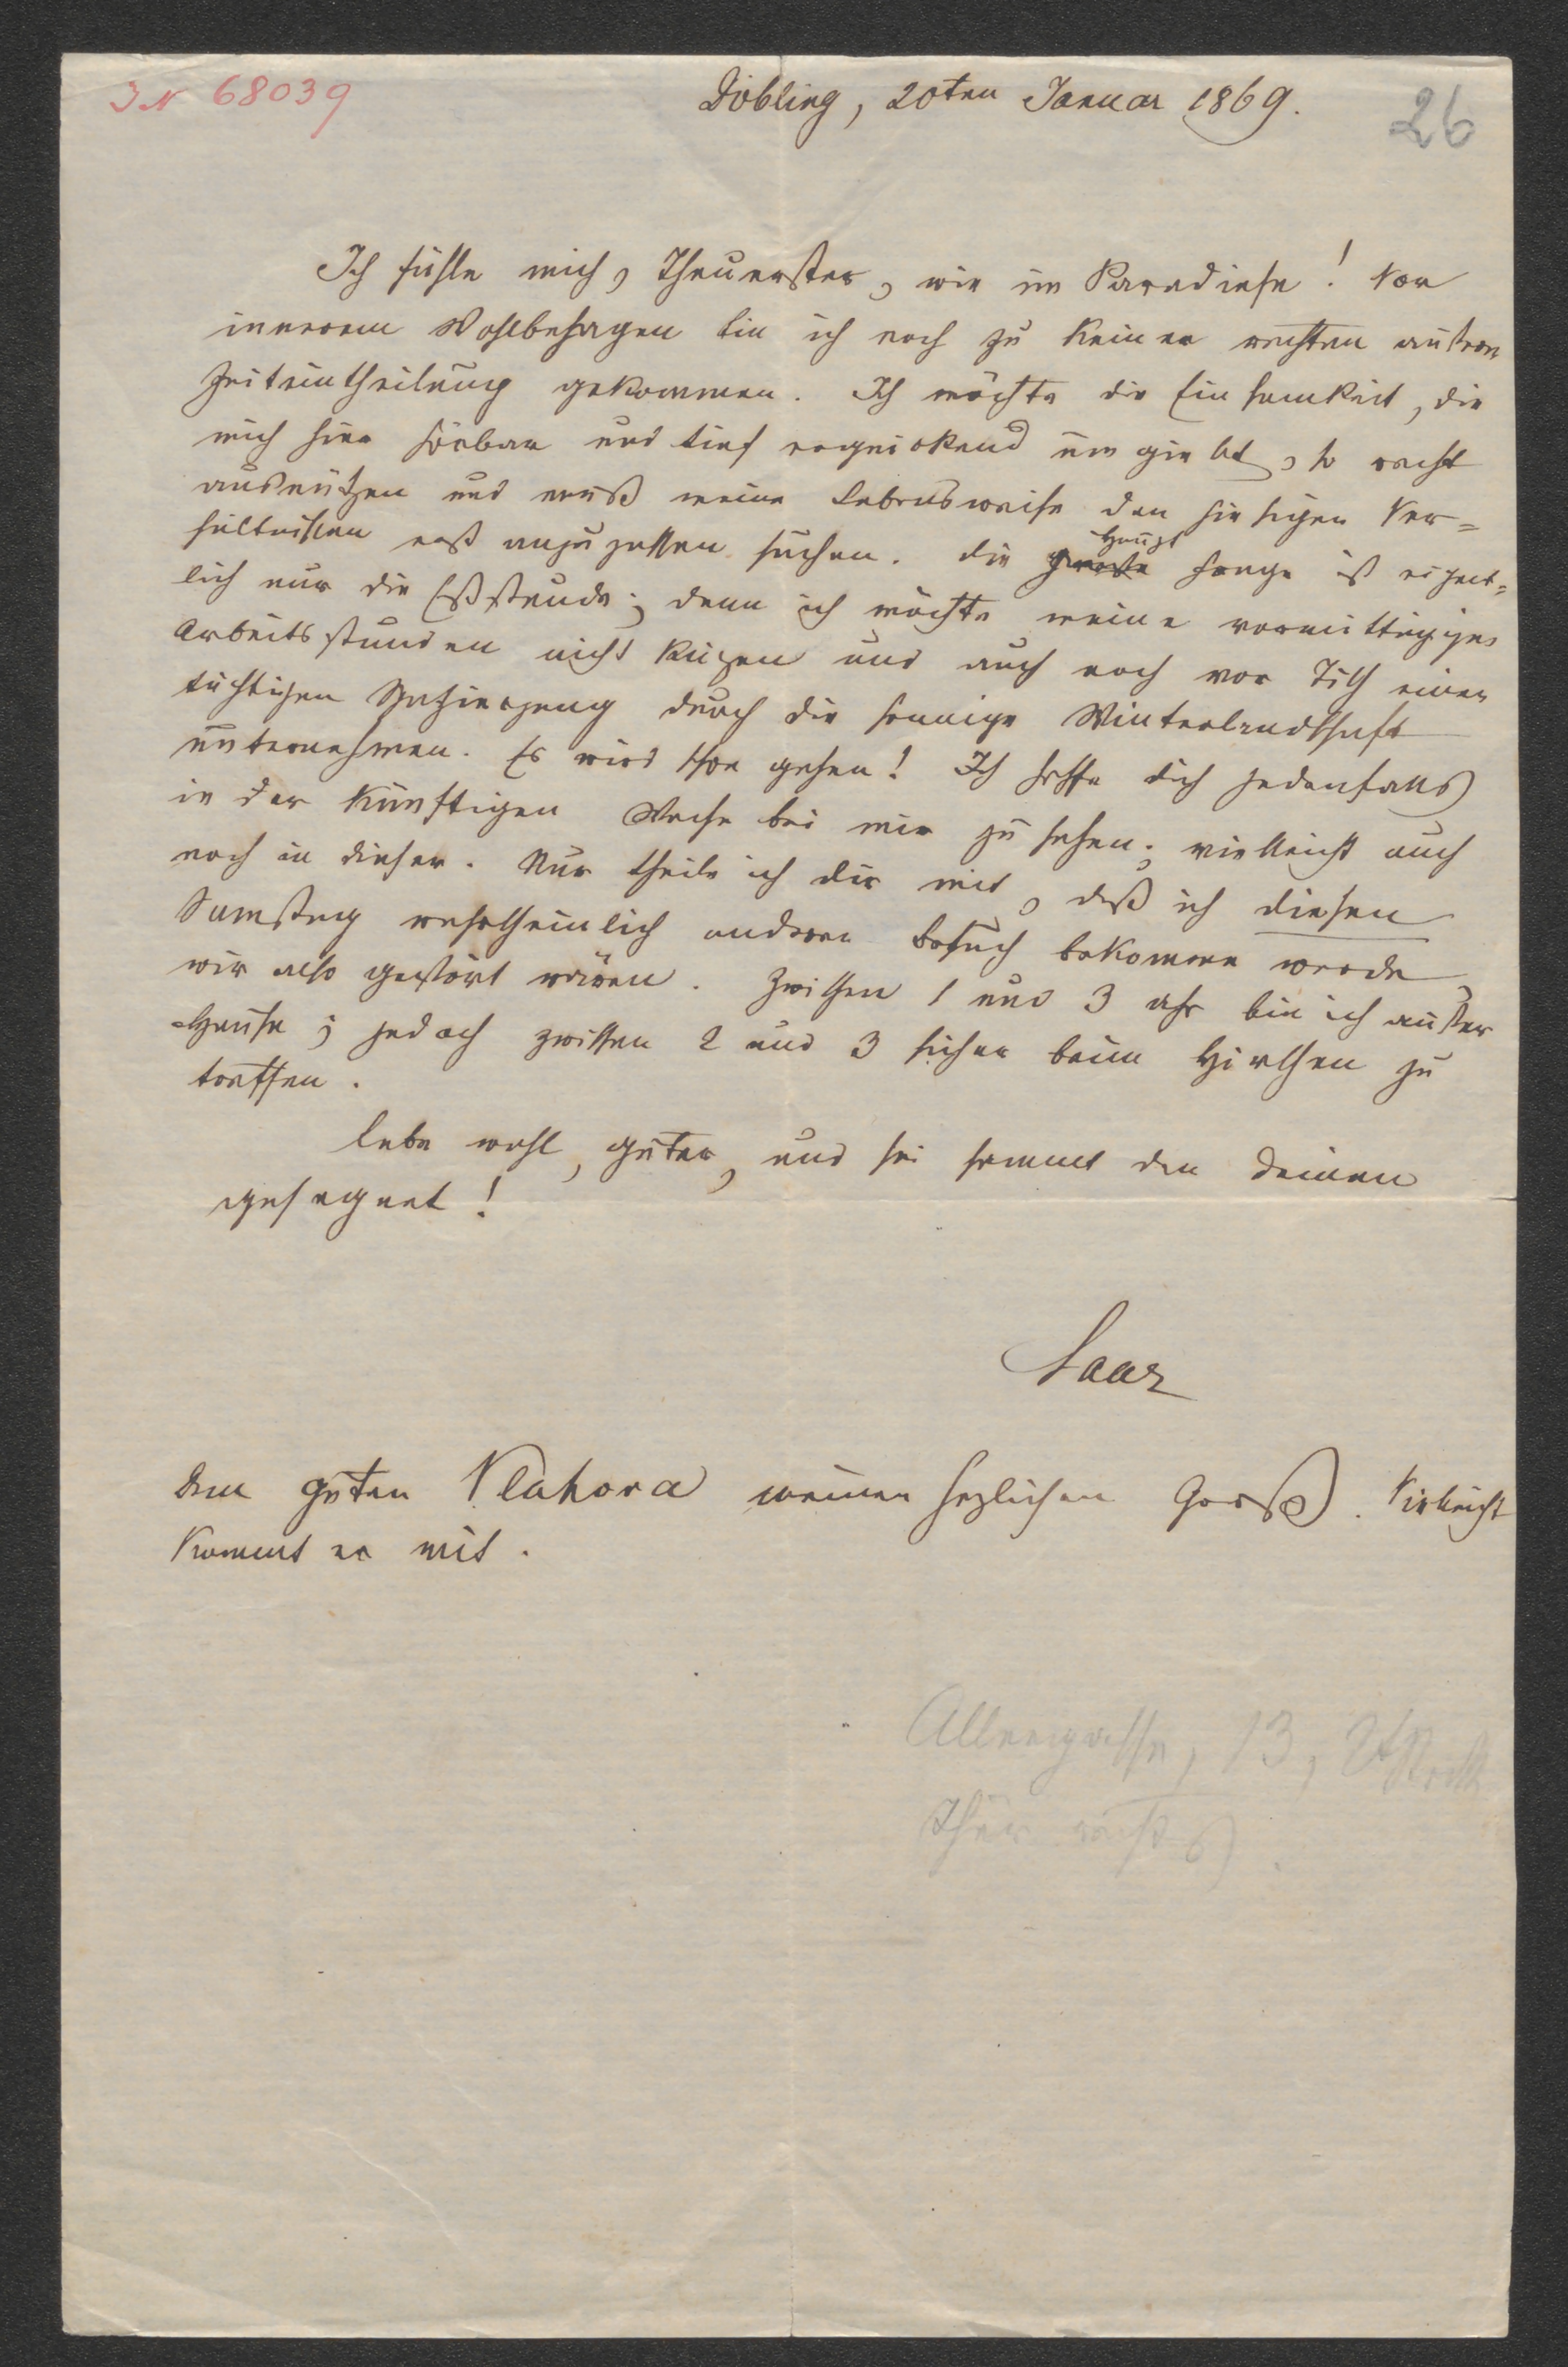 IN 68039
Döbling, 20ten Januar 1869.
26
Ich fühle mich, Theuerster, wie im Paradiese! Vor
innerem Wohlbehagen bin ich noch zu keiner rechten äußern
Zeiteintheilung gekommen. Ich möchte die Einsamkeit, die
mich hier hörbar und tief erquickend umgiebt, so recht
ausnützen und muß meine Lebensweise den hiesigen Ver=
hältnissen erst anzupassen suchen. Die große Haupt Frage ist eigent=
lich nur die Eßstunde; denn ich möchte meine vormittägigen
Arbeitsstunden nicht kürzen und auch noch vor Tisch einen
tüchtigen Spaziergang durch die sonnige Winterlandschaft
unternehmen. Es wird schon gehen! Ich hoffe dich jedenfalls
in der künftigen Woche bei mir zu sehen; vielleicht auch
noch in dieser. Nur theile ich dir mit, daß ich diesen
Samstag wahrscheinlich anderen Besuch bekommen werde,
wir also gestört wären. Zwischen 1 und 3 Uhr bin ich außer
Hause; jedoch zwischen 2 und 3 sicher beim Hirschen zu
treffen.
Lebe wohl, Guter, und sei sammt den Deinen
gesegnet!
Saar
Dem guten Klahora meinen herzlichen Gruß. Vielleicht
kommt er mit.
Alleegasse, 13,
Thür rechts.